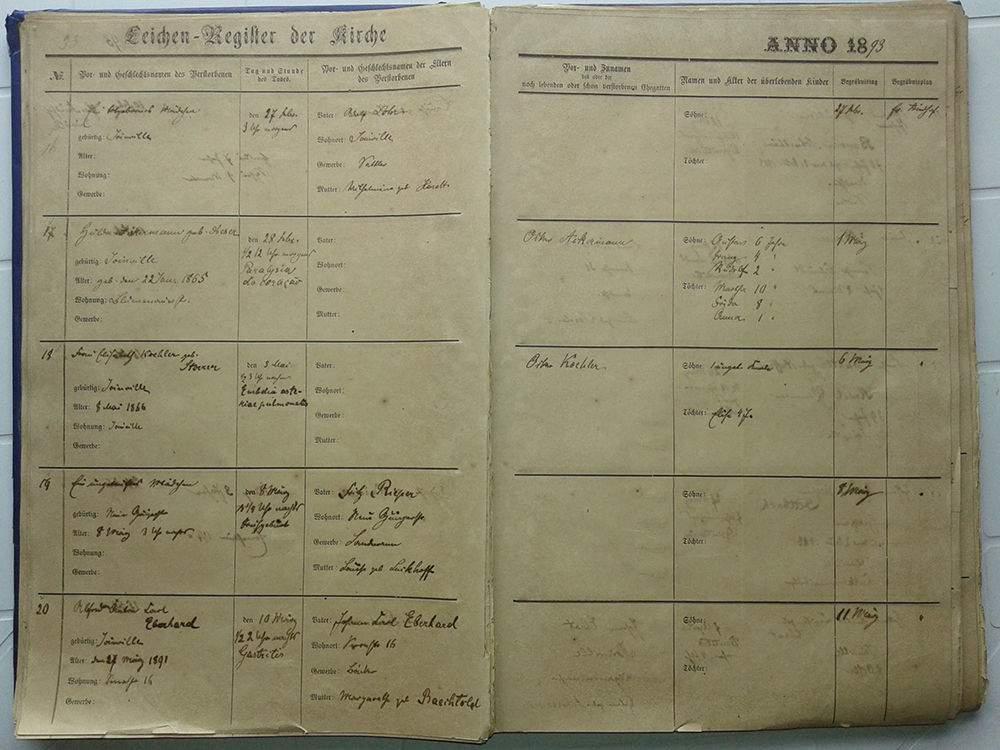 Leichen-Register der Kirche
ANNO 1893
№
Vor- und Geschlechtsnamen des Verstorbenen
Tag und Stunde
des Todes.
Vor- und Geschlechtsnamen der Eltern
des Verstorbenen
Vor- und Zunamen
des oder der
noch lebenden oder schon verstorbenen Ehegatten
Namen und Alter der überlebenden Kinder
Begräbnißtag
Begräbnißplatz
Mädchen
gebürtig: Joinville
Alter:
Wohnung:
Gewerbe:
den 27 Febr.
3 Uhr morgens
Vater:
Wohnort: Joinville
Gewerbe: Sattler
Mutter: Wilhelmine geb.
Söhne:
Töchter:
27 Febr.
17
Hulda Ackermann geb. Storrer
gebürtig: Joinville
Alter: geb. den 22 Janr. 1865
Wohnung:
Gewerbe:
den 28 Febr.
½ 12 Uhr morgens
Paralysia
do coraçao
Vater:
Wohnort:
Gewerbe:
Mutter:
Oskar Ackermann
Söhne: Gustav 6 Jahre
Franz 4 "
Rudolf 2 "
Töchter: Martha 10 "
Frida 8 "
Anna 1 "
1 März
18
Frau Elisabeth Koehler geb.
Storrer
gebürtig: Joinville
Alter: 8 Mai 1866
Wohnung: Joinville
Gewerbe:
den 3 Mai
3 Uhr
Embolia arte-
riae pulmonalis
Vater:
Wohnort:
Gewerbe:
Mutter:
Oskar Koehler
Söhne: 1 ungetauft. Knabe
Töchter: Elisa 4 J.
6 März
"
19
Ein ungetauftes Mädchen
gebürtig: Neue
Alter: 8 März 3 Uhr nachts
Wohnung:
Gewerbe:
den 8 März
Uhr nachts
Vater: Fritz Rieper
Wohnort: Neue
Gewerbe: Landmann
Mutter: Louise geb. Luckhoff
Söhne:
Töchter:
8 März
"
20
Alfred Anton Karl
Eberhard
gebürtig: Joinville
Alter: den 27 März 1891
Wohnung: 16
Gewerbe:
den 10 März
½ 2 Uhr nachts
Gastritis
Vater: Johann Karl Eberhard
Wohnort: 16
Gewerbe: Bäcker
Mutter: Margareth geb. Baechtold
Söhne:
Töchter:
11 März
"